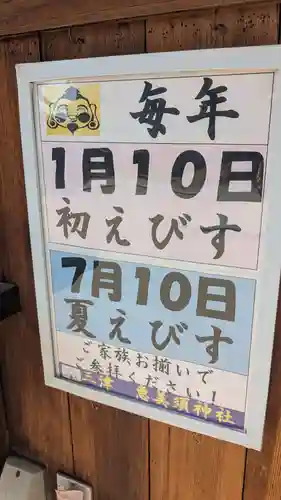 毎年
1月10日
初えびす
7月10日
夏えびす
ご家族お揃いで
ご参拝ください!
恵美須神社